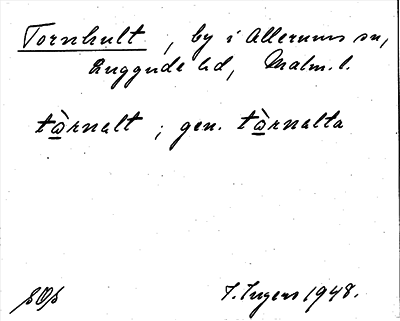 Tornhult, by i Allerums sn,
Luggude hd, Malm. l.
tὼrnalt; gen. tὼrnalta
I. Ingers 1948.